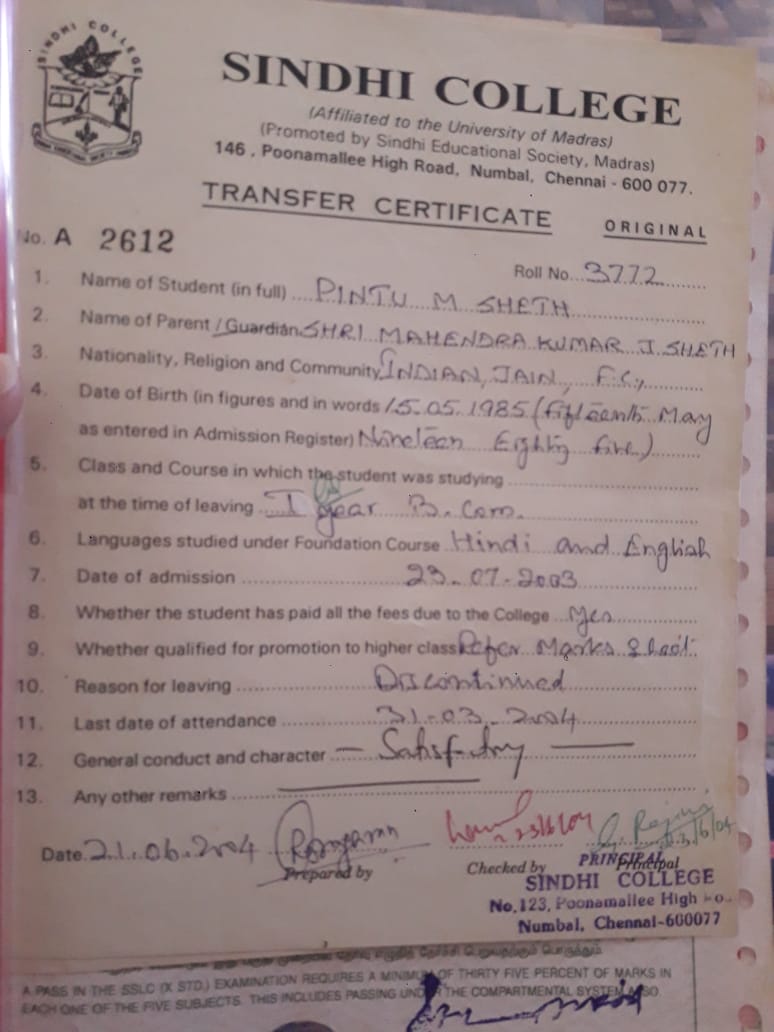 SINDHI COLLEGE
SINDHI COLLEGE
(Affiliated to the University of Madras)
(Promoted by Sindhi Educational Society, Madras)
146, Poonamallee High Road, Numbal, Chennai - 600 077.
TRANSFER CERTIFICATE ORIGINAL
No. A 2612
Roll No. 3772
1. Name of Student (in full) PINTU M SHETH
2. Name of Parent / Guardian SHRI MAHENDRA KUMAR J. SHETH
3. Nationality, Religion and Community INDIAN, JAIN, F.C.,
4. Date of Birth (in figures and in words 15.05.1985 (fifteenth May
as entered in Admission Register) Nineteen Eighty five)
5. Class and Course in which the student was studying
at the time of leaving I year B.Com.
6. Languages studied under Foundation Course Hindi and English
7. Date of admission 23-07-2003
8. Whether the student has paid all the fees due to the College Yes
9. Whether qualified for promotion to higher class Refer Marks Sheet
10. Reason for leaving Discontinued
11. Last date of attendance 31-03-2004
12. General conduct and character — Satisfactory —
13. Any other remarks
Date 21.06.2004
Prepared by Checked by Principal
PRINCIPAL
SINDHI COLLEGE
No.123, Poonamallee High
Numbal, Chennai-600077
A PASS IN THE SSLC (X STD.) EXAMINATION REQUIRES A MINIMUM OF THIRTY FIVE PERCENT OF MARKS IN
EACH ONE OF THE FIVE SUBJECTS. THIS INCLUDES PASSING UNDER THE COMPARTMENTAL SYSTEM ALSO